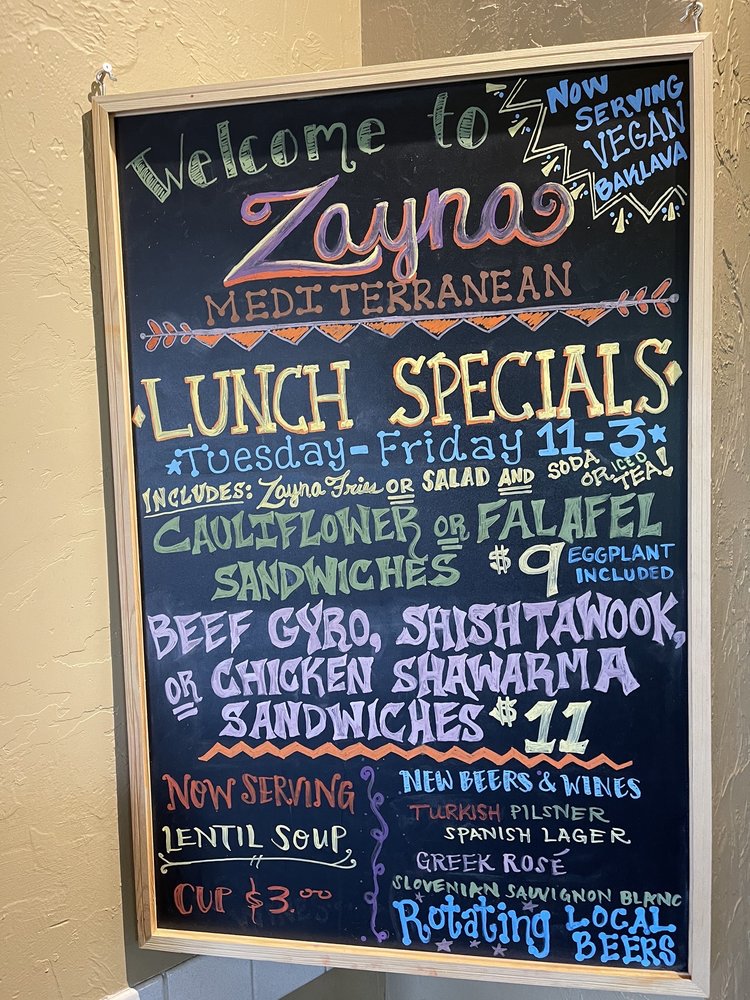 Welcome to
NOW
SERVING
VEGAN
BAKLAVA
Zayna
MEDITERRANEAN
LUNCH SPECIALS
Tuesday-Friday 11-3
INCLUDES: Zayna Fries OR SALAD AND SODA OR ICED TEA!
CAULIFLOWER OR FALAFEL
SANDWICHES $9 EGGPLANT INCLUDED
BEEF GYRO, SHISHTAWOOK,
OR CHICKEN SHAWARMA
SANDWICHES $11
NOW SERVING
LENTIL SOUP
CUP $3.00
NEW BEERS & WINES
TURKISH PILSNER
SPANISH LAGER
GREEK ROSÉ
SLOVENIAN SAUVIGNON BLANC
Rotating LOCAL BEERS